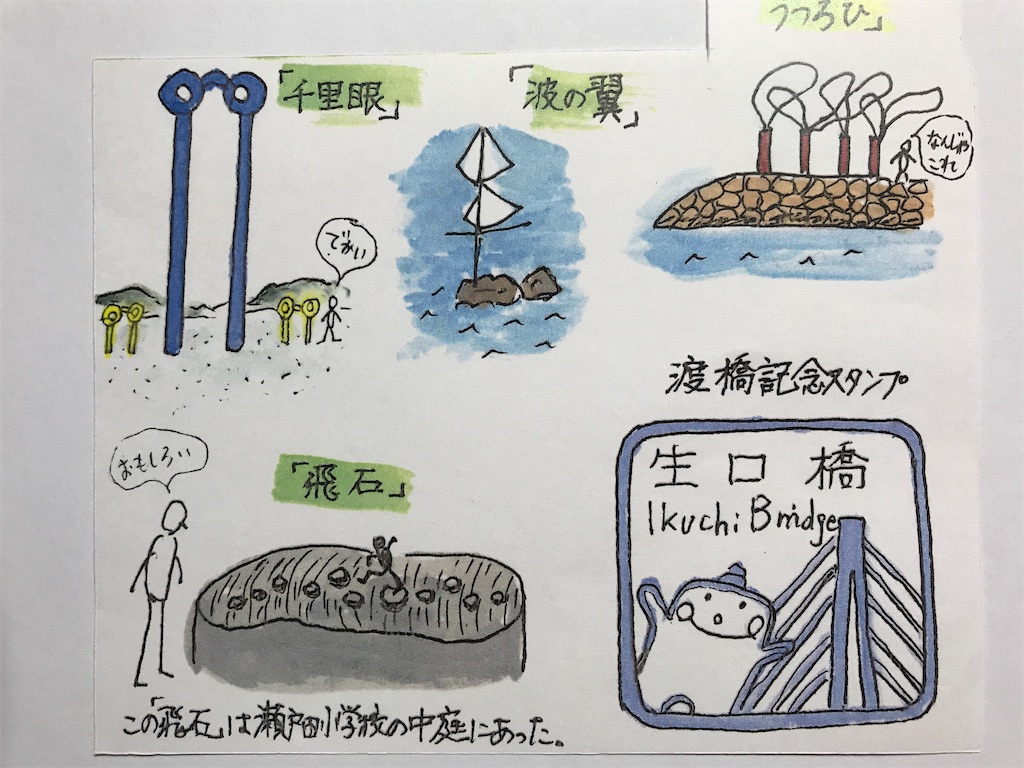 うつろひ」
「千里眼」
「波の翼」
なんじゃ
これ
でかい
渡橋記念スタンプ
生口橋
Ikuchi Bridge
おもしろい
「飛石」
この「飛石」は瀬戸田小学校の中庭にあった。